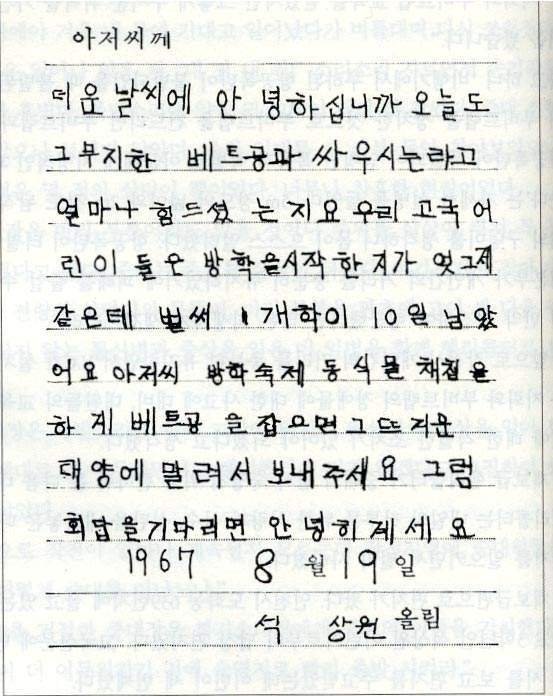 아저씨께
더운 날씨에 안녕하십니까 오늘도
그무지한 베트콩과 싸우시는라고
얼마나 힘드셨는지요 우리 고국 어
린이들은 방학을시작한지가 엊그제
같은데 벌써 개학이 10일 남았
어요 아저씨 방학숙제 동식물 채집을
하게 베트콩을 잡으면 그 뜨거운
태양에 말려서 보내주세요 그럼
회답을기다리면 안녕히계세요
1967 8월 19일
석 상원 올림